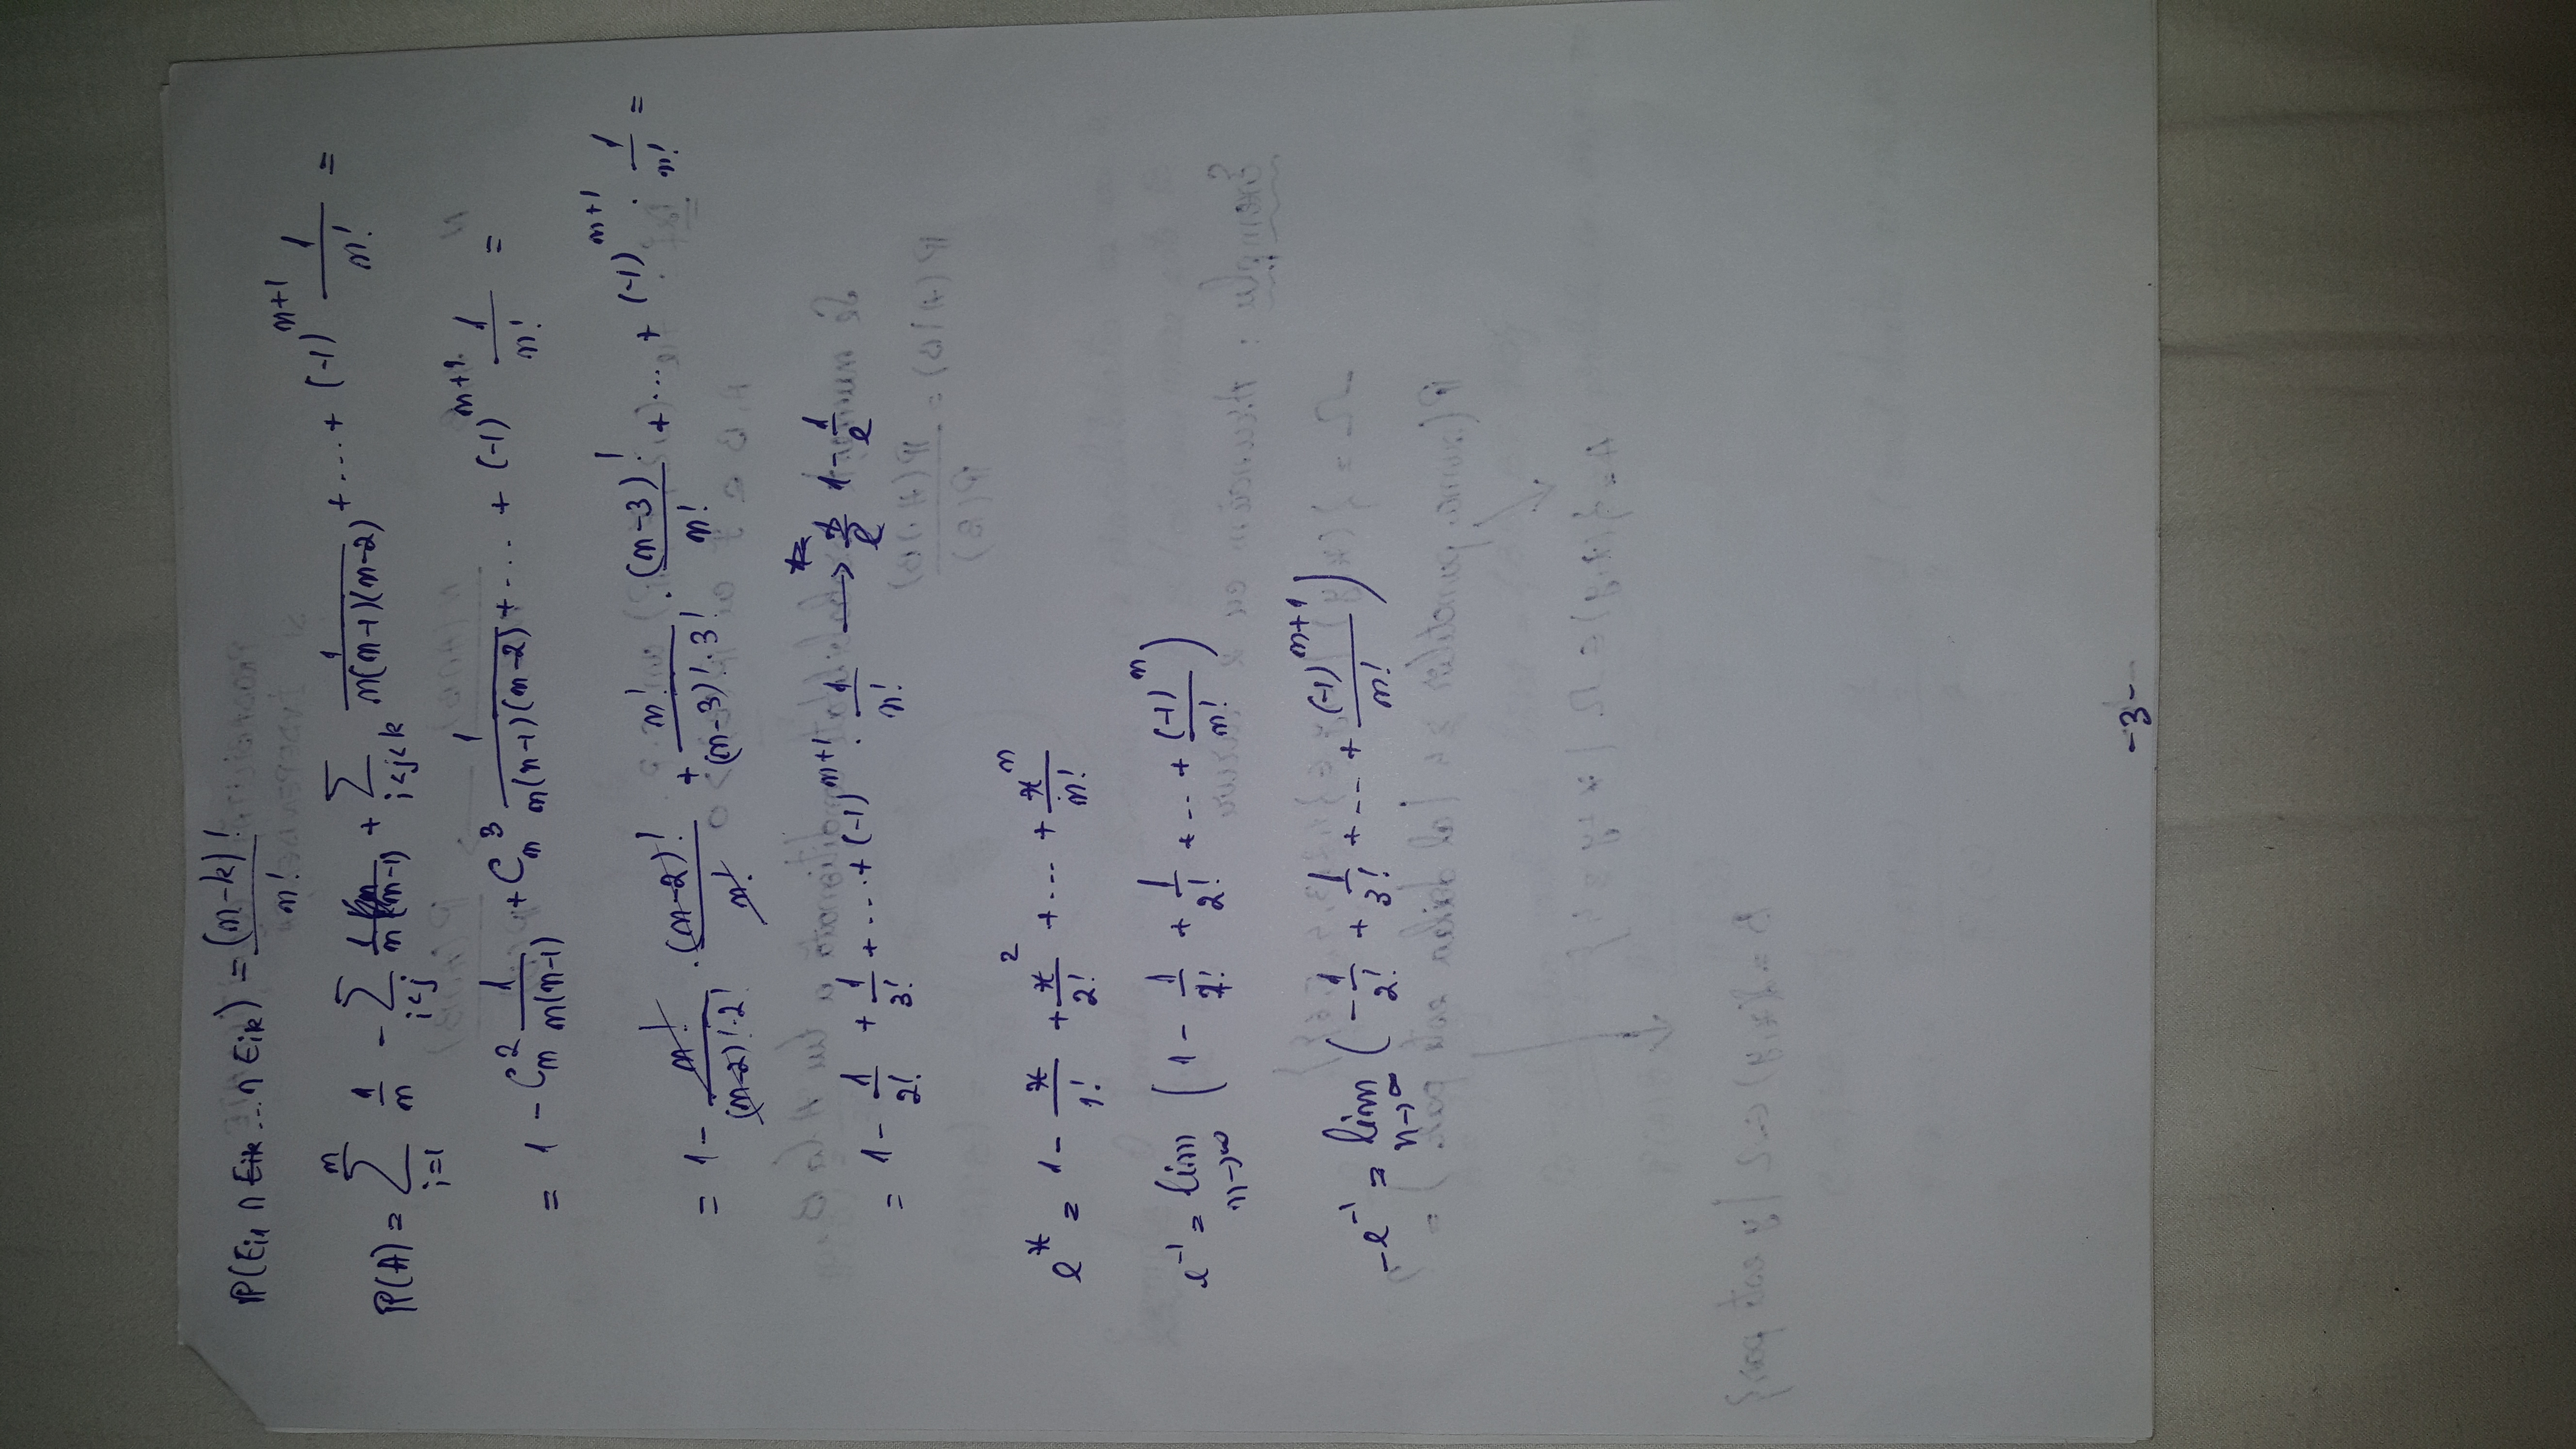 P(Ei1 ∩ ... ∩ Eik) = (n-k)! / n!
P(A) = Σ_{i=1}^{n} 1/n - Σ_{i<j} 1/n(n-1) + Σ_{i<j<k} 1/n(n-1)(n-2) + ... + (-1)^{n+1} 1/n! =
= 1 - C_n^2 1/n(n-1) + C_n^3 1/n(n-1)(n-2) + ... + (-1)^{n+1} 1/n! =
= 1 - n!/(n-2)!·2! · (n-2)!/n! + n!/(n-3)!·3! · (n-3)!/n! + ... + (-1)^{n+1} · 1/n! =
= 1 - 1/2! + 1/3! + ... + (-1)^{n+1} · 1/n! → 1 - 1/e
e^x = 1 - x/1! + x^2/2! + ... + x^n/n!
e^{-1} = lim_{n→∞} (1 - 1/1! + 1/2! + ... + (-1)^n/n!)
-e^{-1} = lim_{n→∞} (-1/2! + 1/3! + ... + (-1)^{n+1}/n!)
-3-